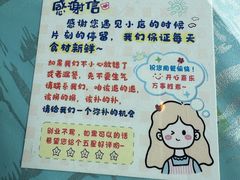 感谢信
感谢您遇见小店的时候
片刻的停留，我们保证每天
食材新鲜~
如果我们不小心放错了
或者迟餐，先不要生气
请联系我们，咱该退的退，
该赔的赔，该补的补。
请给我们一个弥补的机会
祝您用餐愉快！
开心喜乐
万事胜意~
创业不易，如果可以的话
希望您给个五星好评哟~